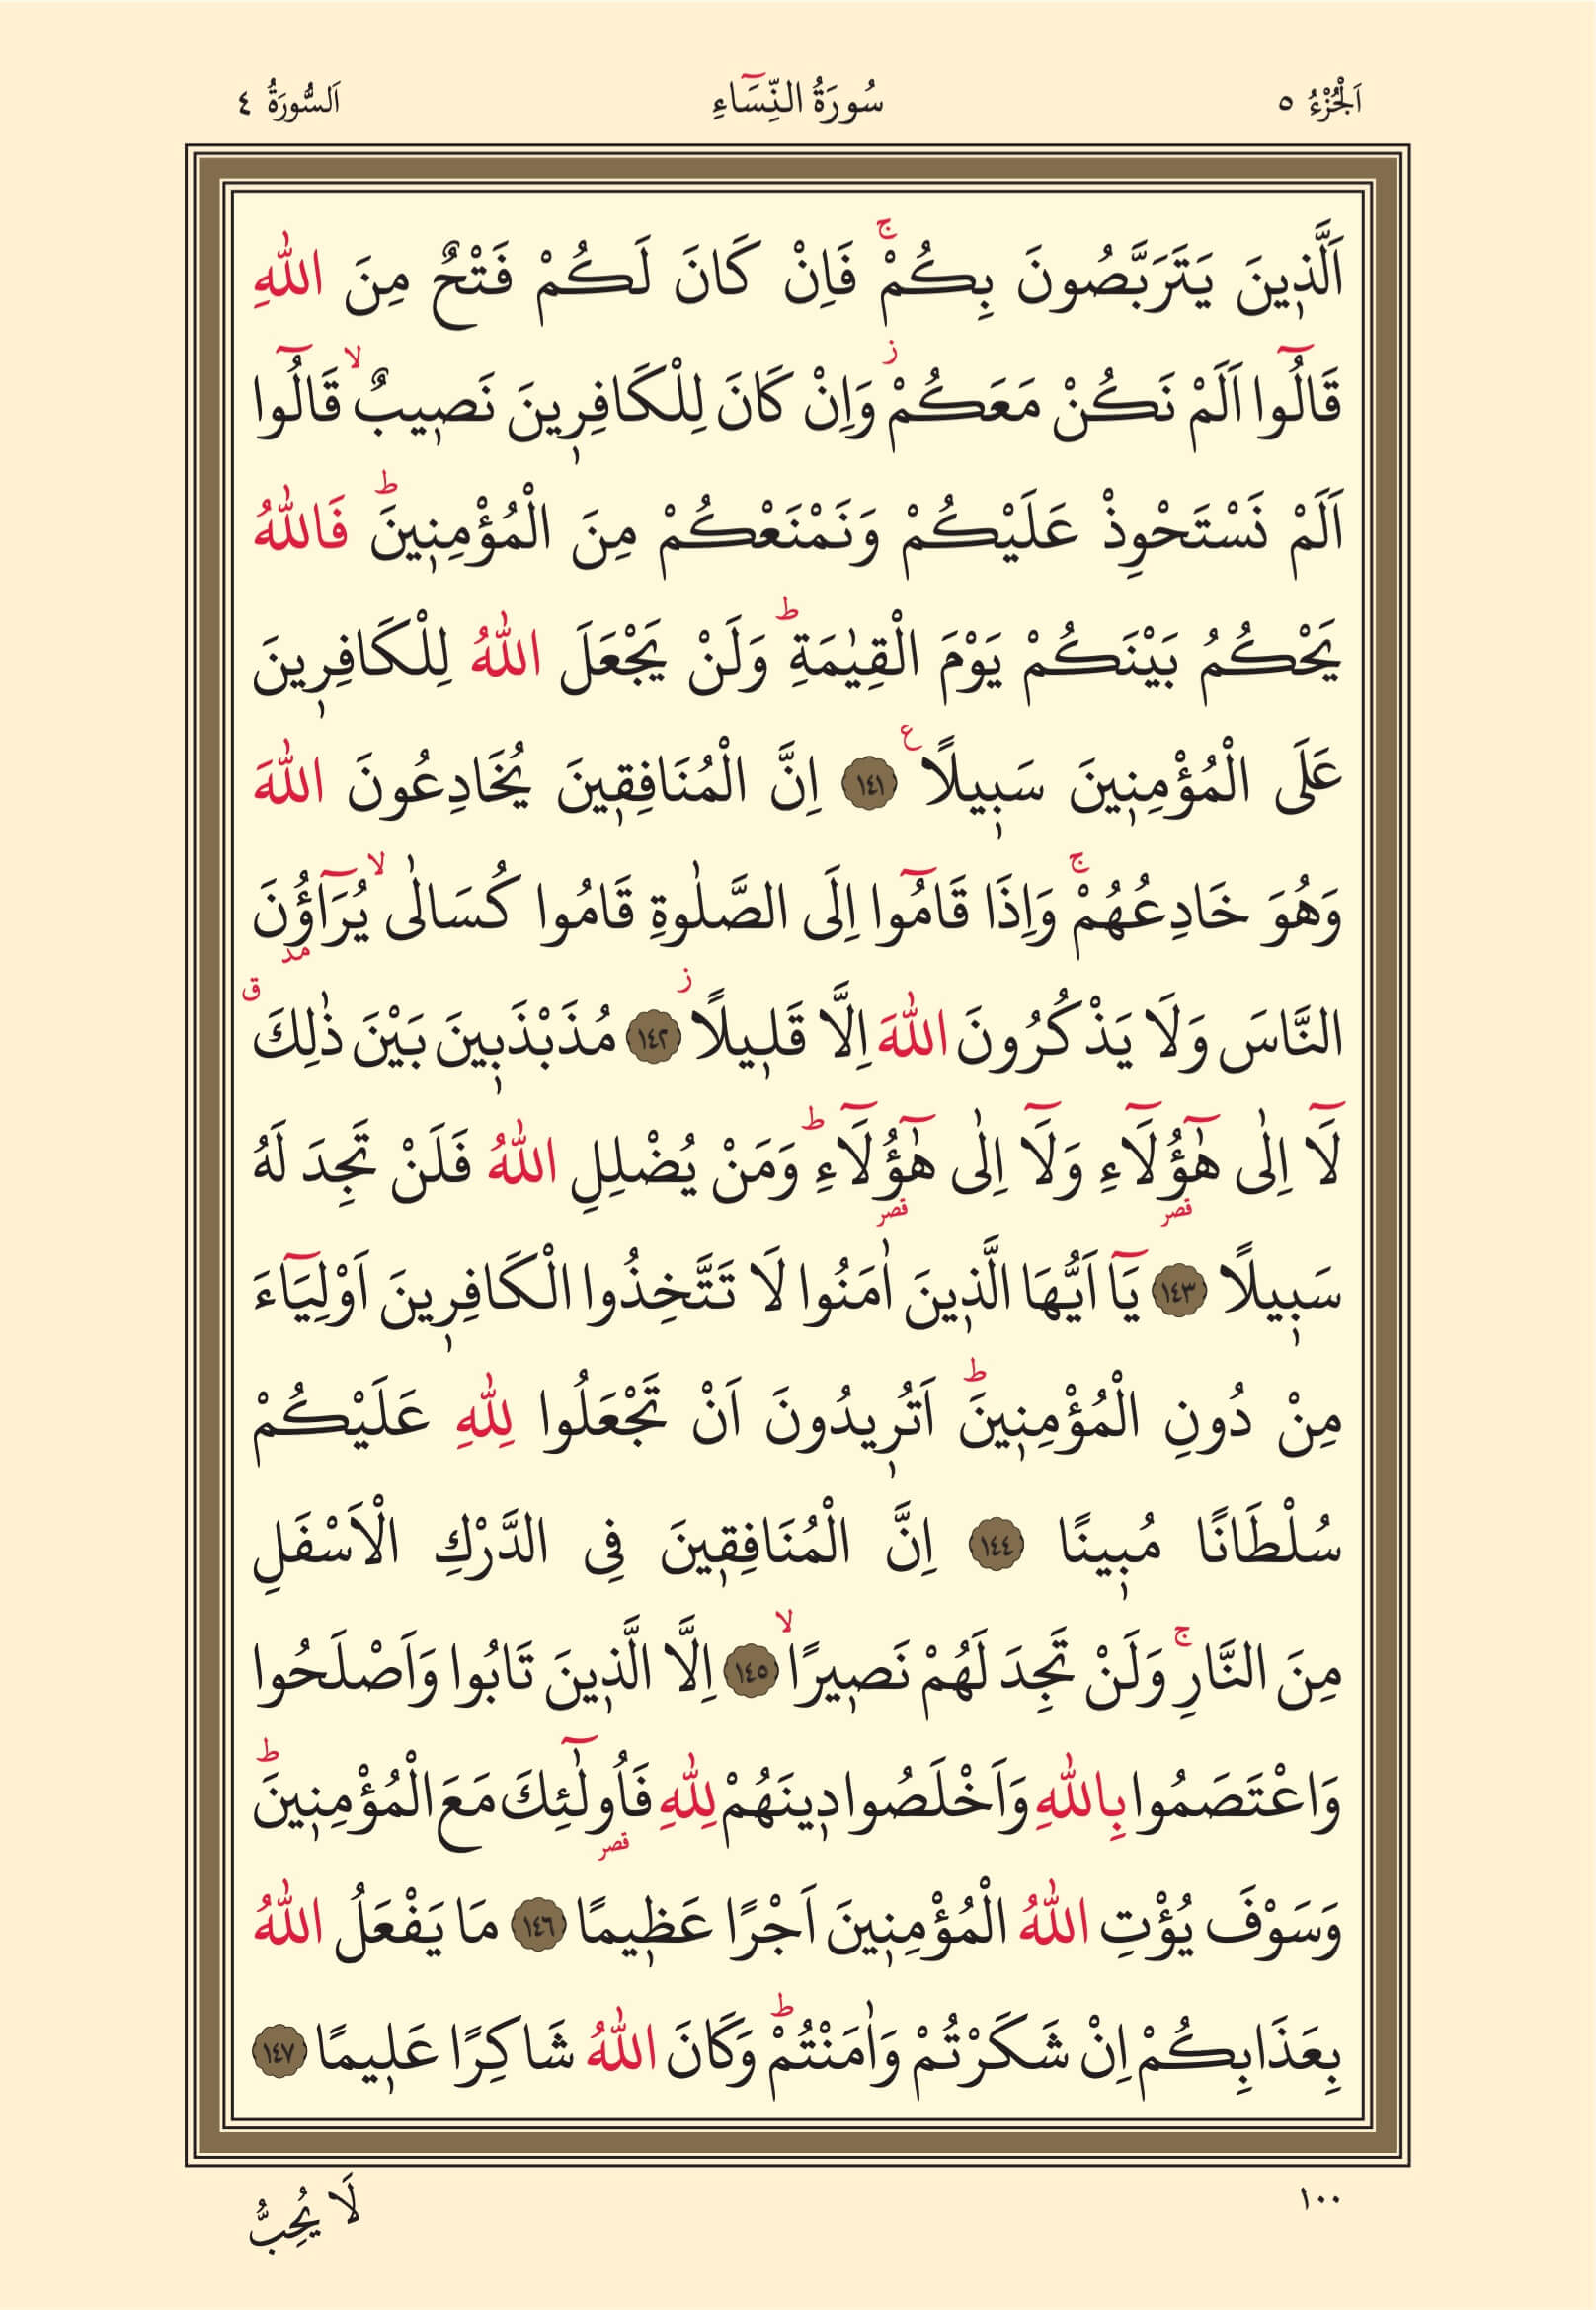 اَلْجُزْءُ ٥ سُورَةُ النِّسَٓاءِ اَلسُّورَةُ ٤
اَلَّذ۪ينَ يَتَرَبَّصُونَ بِكُمْۚ فَاِنْ كَانَ لَكُمْ فَتْحٌ مِنَ اللّٰهِ
قَالُٓوا اَلَمْ نَكُنْ مَعَكُمْۘ وَاِنْ كَانَ لِلْكَافِر۪ينَ نَص۪يبٌۙ قَالُٓوا
اَلَمْ نَسْتَحْوِذْ عَلَيْكُمْ وَنَمْنَعْكُمْ مِنَ الْمُؤْمِن۪ينَۜ فَاللّٰهُ
يَحْكُمُ بَيْنَكُمْ يَوْمَ الْقِيٰمَةِۜ وَلَنْ يَجْعَلَ اللّٰهُ لِلْكَافِر۪ينَ
عَلَى الْمُؤْمِن۪ينَ سَب۪يلًا۟ ﴿١٤١﴾ اِنَّ الْمُنَافِق۪ينَ يُخَادِعُونَ اللّٰهَ
وَهُوَ خَادِعُهُمْۚ وَاِذَا قَامُٓوا اِلَى الصَّلٰوةِ قَامُوا كُسَالٰىۙ يُرَٓاؤُ۫نَ
النَّاسَ وَلَا يَذْكُرُونَ اللّٰهَ اِلَّا قَل۪يلًاۘ ﴿١٤٢﴾ مُذَبْذَب۪ينَ بَيْنَ ذٰلِكَۗ
لَٓا اِلٰى هٰٓؤُ۬لَٓاءِ وَلَٓا اِلٰى هٰٓؤُ۬لَٓاءِۜ وَمَنْ يُضْلِلِ اللّٰهُ فَلَنْ تَجِدَ لَهُ
سَب۪يلًا ﴿١٤٣﴾ يَٓا اَيُّهَا الَّذ۪ينَ اٰمَنُوا لَا تَتَّخِذُوا الْكَافِر۪ينَ اَوْلِيَٓاءَ
مِنْ دُونِ الْمُؤْمِن۪ينَۜ اَتُر۪يدُونَ اَنْ تَجْعَلُوا لِلّٰهِ عَلَيْكُمْ
سُلْطَانًا مُب۪ينًا ﴿١٤٤﴾ اِنَّ الْمُنَافِق۪ينَ فِي الدَّرْكِ الْاَسْفَلِ
مِنَ النَّارِۚ وَلَنْ تَجِدَ لَهُمْ نَص۪يرًاۙ ﴿١٤٥﴾ اِلَّا الَّذ۪ينَ تَابُوا وَاَصْلَحُوا
وَاعْتَصَمُوا بِاللّٰهِ وَاَخْلَصُوا د۪ينَهُمْ لِلّٰهِ فَاُو۬لٰٓئِكَ مَعَ الْمُؤْمِن۪ينَۜ
وَسَوْفَ يُؤْتِ اللّٰهُ الْمُؤْمِن۪ينَ اَجْرًا عَظ۪يمًا ﴿١٤٦﴾ مَا يَفْعَلُ اللّٰهُ
بِعَذَابِكُمْ اِنْ شَكَرْتُمْ وَاٰمَنْتُمْۜ وَكَانَ اللّٰهُ شَاكِرًا عَل۪يمًا ﴿١٤٧﴾
١٠٠ لَا يُحِبُّ